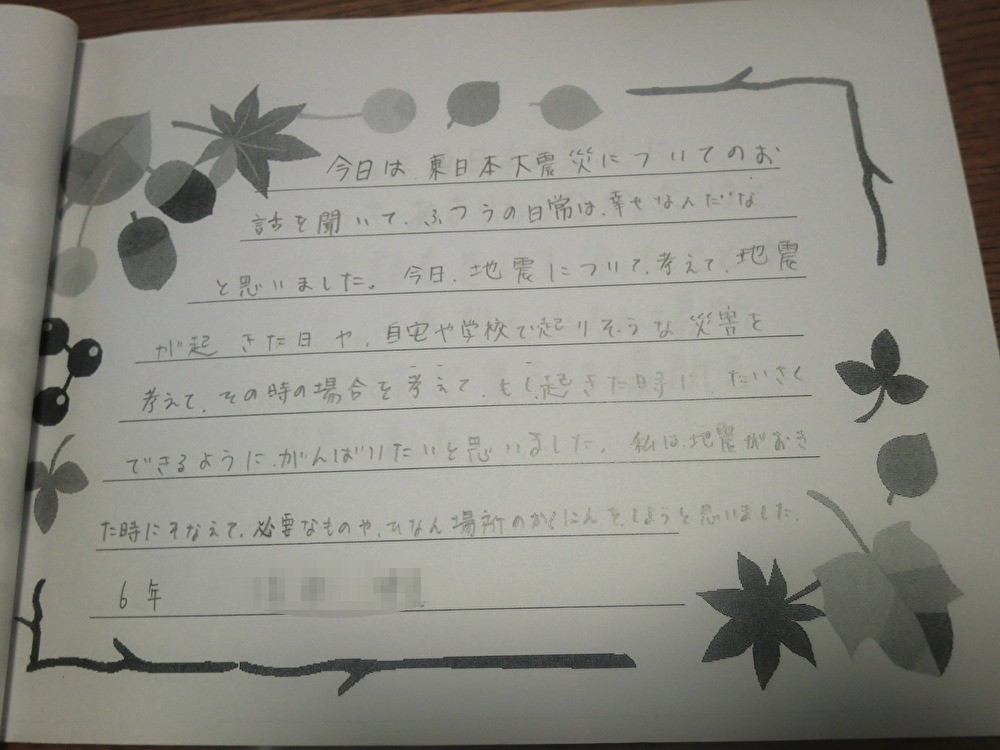 今日は、東日本大震災についてのお
話を聞いて、ふつうの日常は、幸せなんだな
と思いました。今日、地震について、考えて、地震
が起きた日や、自宅や学校で起りそうな災害を
考えて、その時の場合を考えて、もし、起きた時に、たいさく
できるように、がんばりたいと思いました。私は、地震がおき
た時にそなえて、必要なものや、ひなん場所のかくにんをしようと思いました。
6年